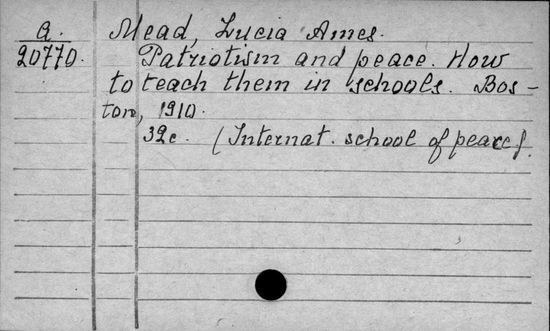 A. Mead, Lucia Ames.
20770. Patriotism and peace. How
to teach them in schools. Bos-
ton, 1910.
32c. (Internat. school of peace).